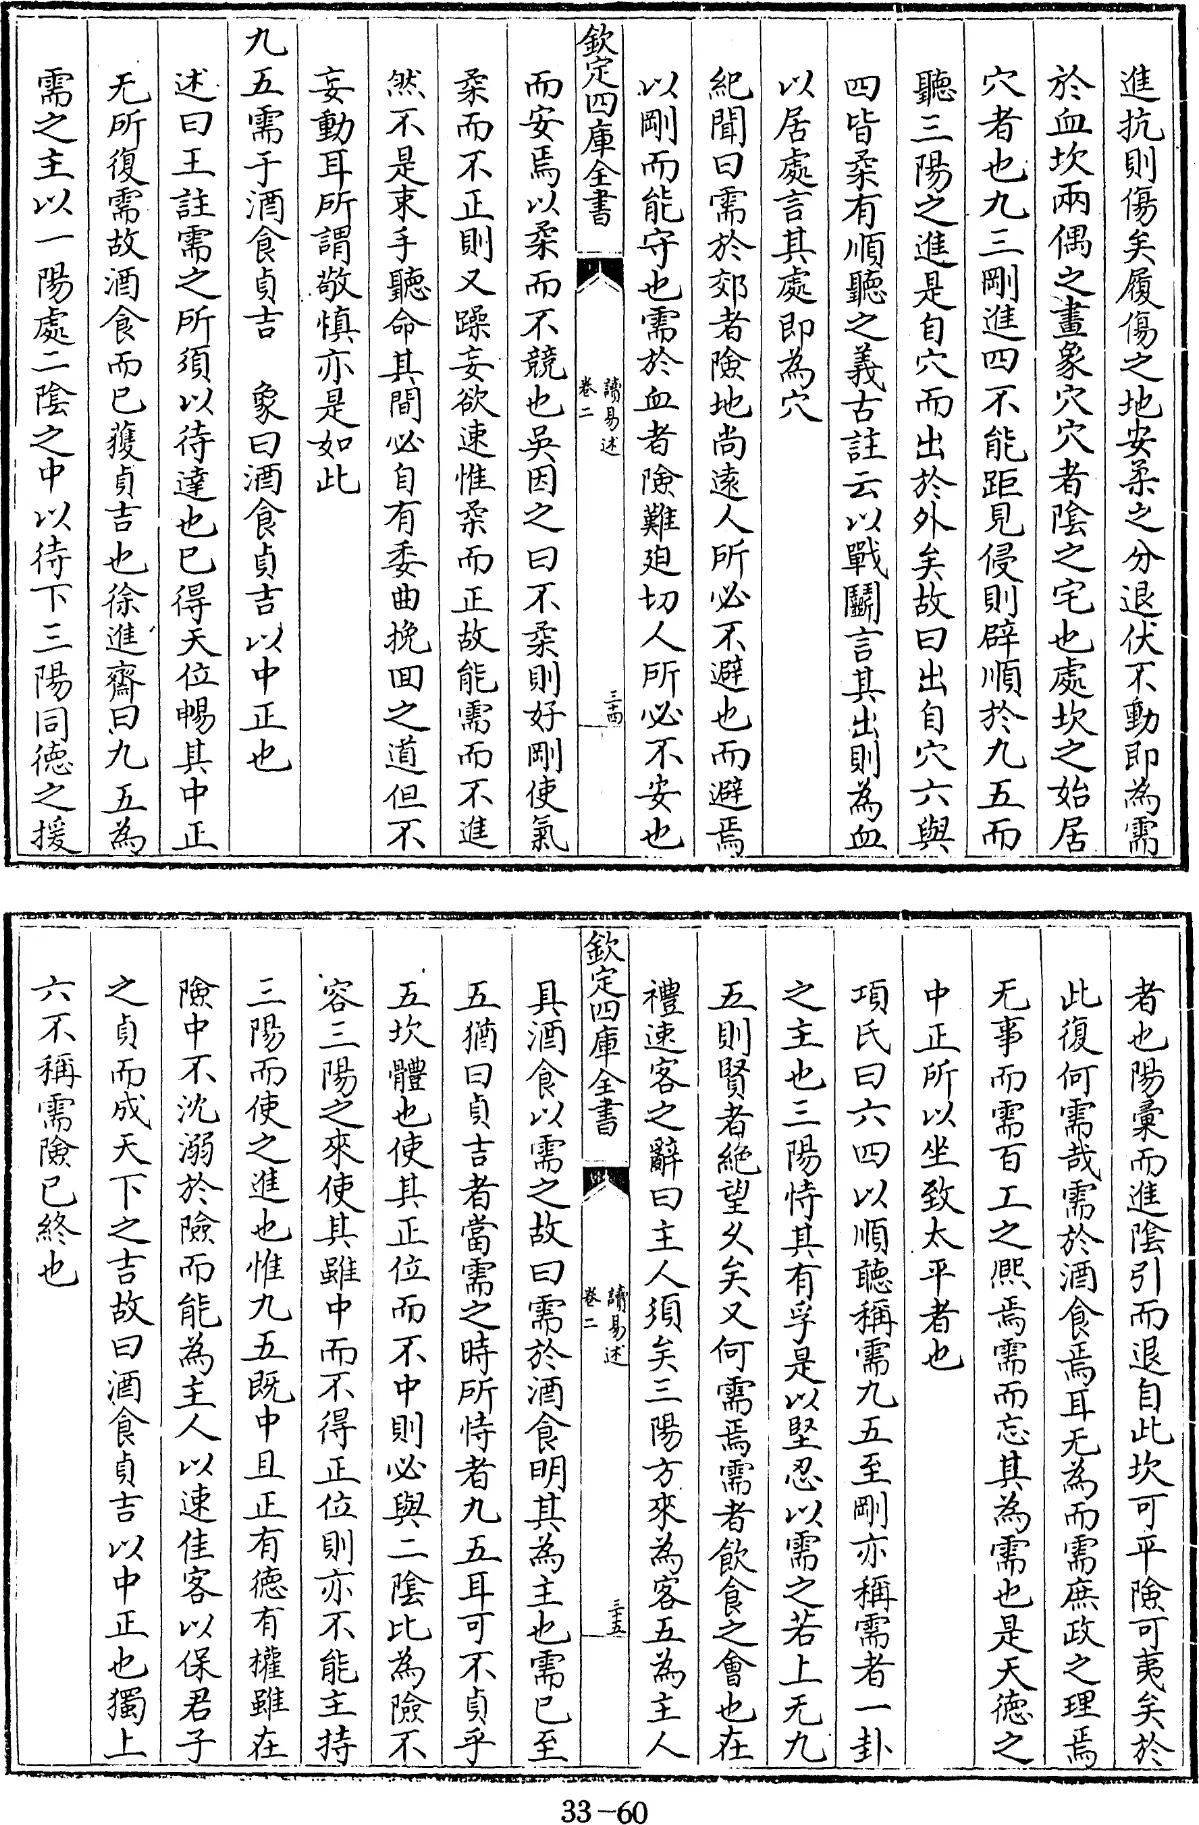 進抗則傷矣履傷之地安柔之分退伏不動即為需
於血坎兩偶之畫象穴穴者陰之宅也處坎之始居
穴者也九三剛進四不能距見侵則辟順於九五而
聽三陽之進是自穴而出於外矣故曰出自穴六與
四皆柔有順聽之義古註云以戰鬭言其出則為血
以居處言其處即為穴
紀聞曰需於郊者險地尚遠人所必不避也而避焉
以剛而能守也需於血者險難廹切人所必不安也
欽定四庫全書
讀易述
卷二
三十四
而安焉以柔而不競也吳因之曰不柔則好剛使氣
柔而不正則又躁妄欲速惟柔而正故能需而不進
然不是束手聽命其間必自有委曲挽回之道但不
妄動耳所謂敬慎亦是如此
九五需于酒食貞吉 象曰酒食貞吉以中正也
述曰王註需之所須以待達也已得天位暢其中正
无所復需故酒食而已獲貞吉也徐進齋曰九五為
需之主以一陽處二陰之中以待下三陽同德之援
者也陽彙而進陰引而退自此坎可平險可夷矣於
此復何需哉需於酒食焉耳无為而需庶政之理焉
无事而需百工之熈焉需而忘其為需也是天德之
中正所以坐致太平者也
項氏曰六四以順聽稱需九五至剛亦稱需者一卦
之主也三陽恃其有孚是以堅忍以需之若上无九
五則賢者絶望乆矣又何需焉需者飲食之會也在
禮速客之辭曰主人須矣三陽方來為客五為主人
欽定四庫全書
讀易述
卷二
三十五
具酒食以需之故曰需於酒食明其為主也需已至
五猶曰貞吉者當需之時所恃者九五耳可不貞乎
五坎體也使其正位而不中則必與二陰比為險不
容三陽之來使其雖中而不得正位則亦不能主持
三陽而使之進也惟九五既中且正有德有權雖在
險中不沈溺於險而能為主人以速佳客以保君子
之貞而成天下之吉故曰酒食貞吉以中正也獨上
六不稱需險已終也
33-60